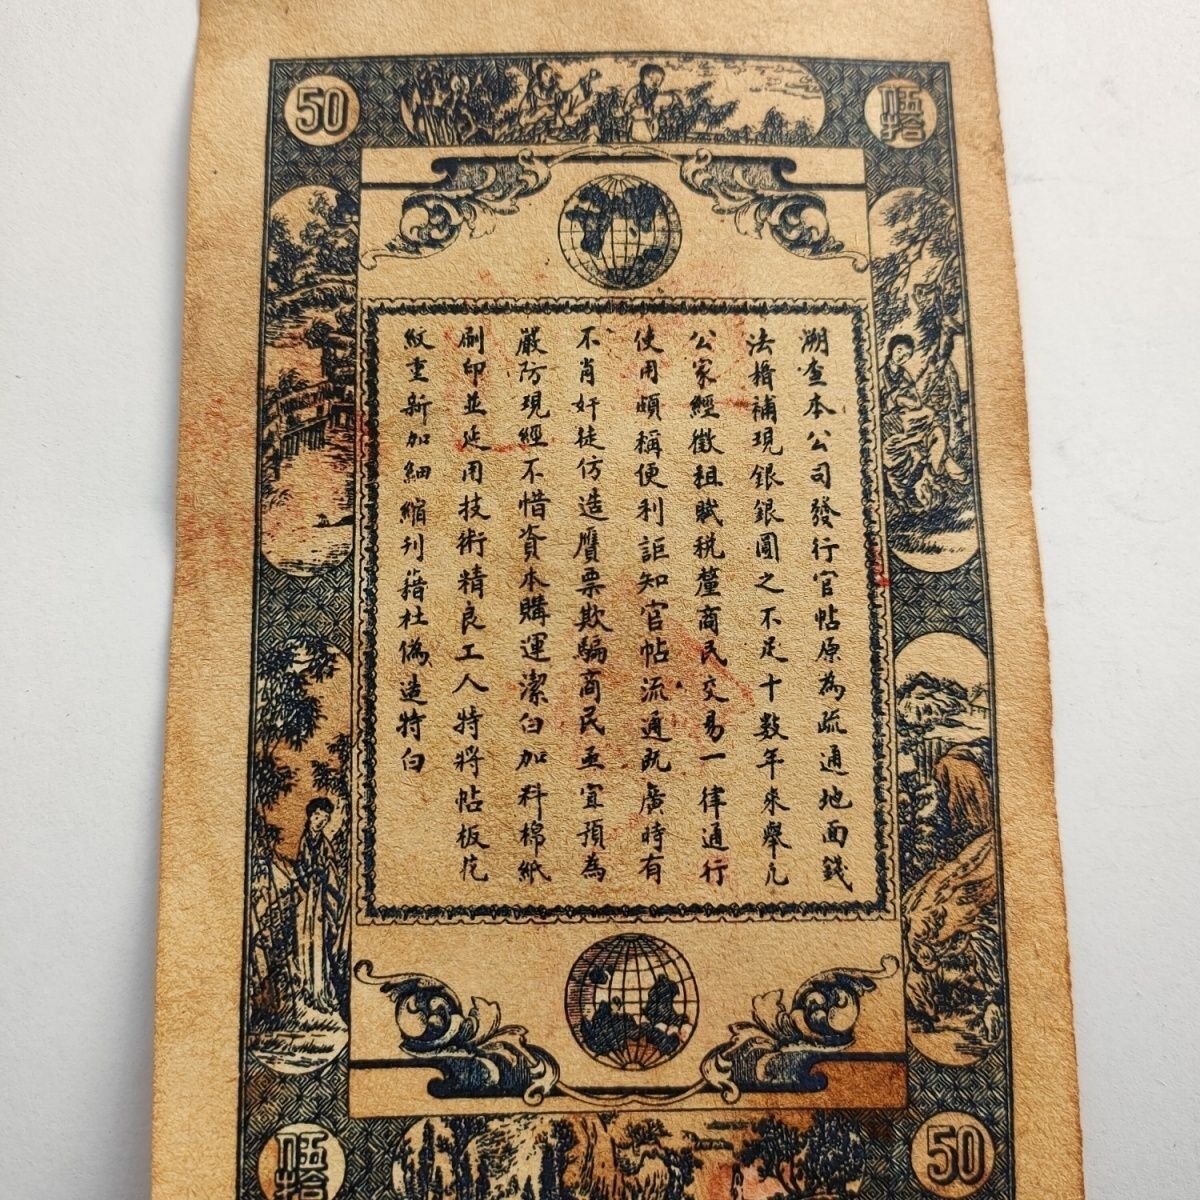 50
伍拾
溯查本公司發行官帖原為疏通地面錢
法揩補現銀銀圓之不足十數年來舉凡
公家經徵租賦稅釐商民交易一律通行
使用頗稱便利詎知官帖流通既廣時有
不肖奸徒仿造贋票欺騙商民亟宜預為
嚴防現經不惜資本購運潔白加料棉紙
刷印並延用技術精良工人特將帖板花
紋重新加細縮刊藉杜偽造特白
伍拾
50